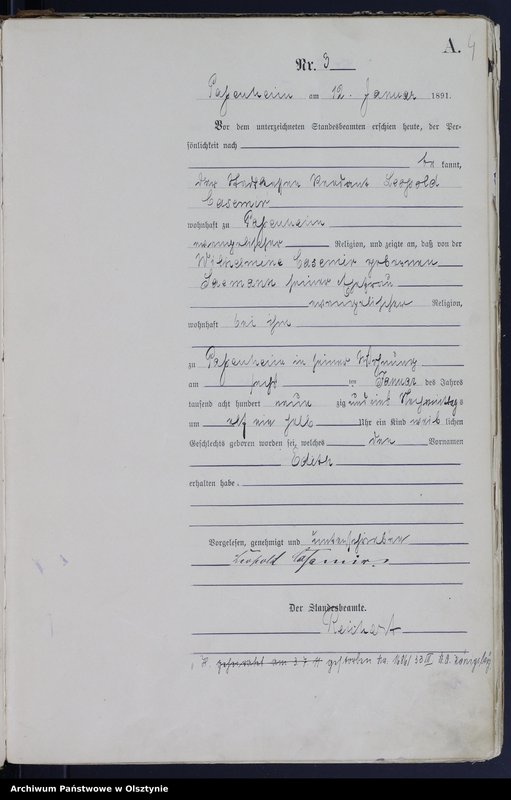 A. 4
Nr. 3
Passenheim am 12. Januar 1891.
Vor dem unterzeichneten Standesbeamten erschien heute, der Per-
sönlichkeit nach
be kannt,
der Rendant Leopold
Casemir
wohnhaft zu Passenheim
evangelischer Religion, und zeigte an, daß von der
Wilhelmine Casemir geborenen
seiner Ehefrau
evangelischer Religion,
wohnhaft bei ihm
zu Passenheim in seiner Wohnung
am ten Januar des Jahres
tausend acht hundert neun zig und eins Nachmittags
um elf ein halb Uhr ein Kind weib lichen
Geschlechts geboren worden sei, welches den Vornamen
Edith
erhalten habe.
Vorgelesen, genehmigt und unterschrieben
Leopold Casemir.
Der Standesbeamte.
Reichert
gestorben
Archiwum Państwowe w Olsztynie